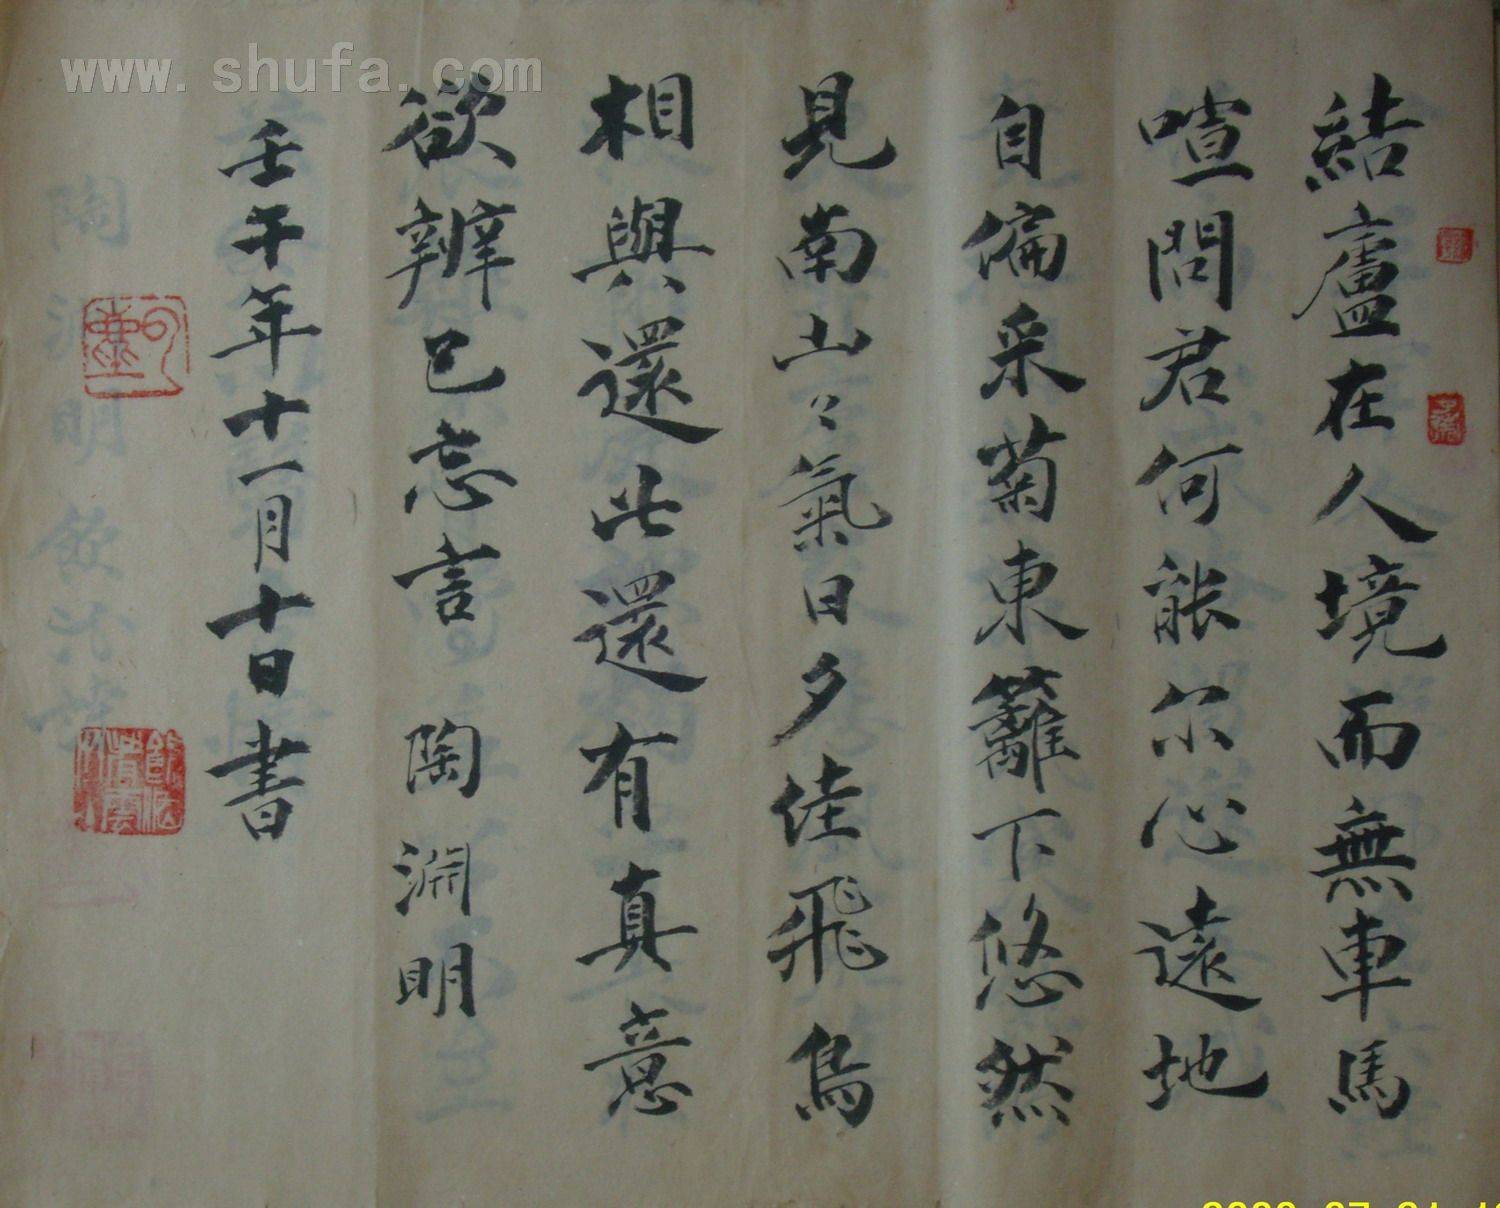 結廬在人境而無車馬
喧問君何能尔心遠地
自偏采菊東籬下悠然
見南山々氣日夕佳飛鳥
相與還此還有真意
欲辨已忘言 陶淵明
壬午年十一月十日書
www.shufa.com